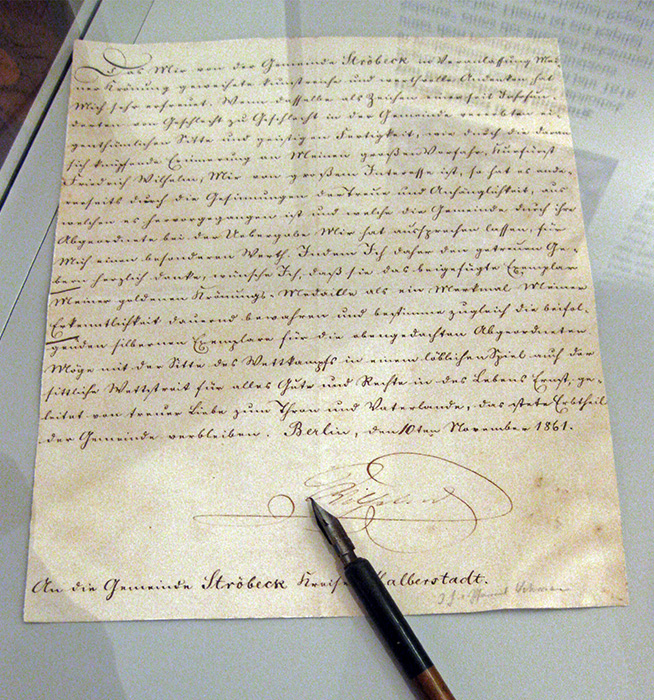 Das Mir von der Gemeinde Ströbeck in Veranlassung Mei-
ner Krönung geweihete kunstreiche und werthvolle Andenken hat
Mich sehr erfreuet. Wenn dasselbe als Zeichen einer seit Jahrhun-
derten von Geschlecht zu Geschlecht in der Gemeinde vererbten ei-
genthümlichen Sitte und geistigen Fertigkeit, wie durch die daran
sich knüpfende Erinnerung an Meinen großen Vorfahr, Kurfürst
Friedrich Wilhelm, Mir von großem Interesse ist, so hat es ande-
rerseits durch die Gesinnungen der Treue und Anhänglichkeit, aus
welcher es hervorgegangen ist und welche die Gemeinde durch ihre
Abgeordnete bei der Uebergabe Mir hat aussprechen lassen, für
Mich einen besonderen Werth. Indem Ich daher den getreuen Ge-
bern herzlich danke, wünsche Ich, daß sie das beigefügte Exemplar
Meiner goldenen Krönungs-Medaille als ein Merkmal Meiner
Erkenntlichkeit dauernd bewahren und bestimme zugleich die beifol-
genden silbernen Exemplare für die ebengedachten Abgeordneten
Möge mit der Sitte des Wettkampfs in einem löblichen Spiel auch der
sittliche Wettstreit für alles Gute und Rechte in des Lebens Ernst, ge-
leitet von treuer Liebe zum Thron und Vaterlande, das stete Erbtheil
der Gemeinde verbleiben. Berlin, den 10ten November 1861.
Wilhelm
An die Gemeinde Ströbeck Kreis Halberstadt.